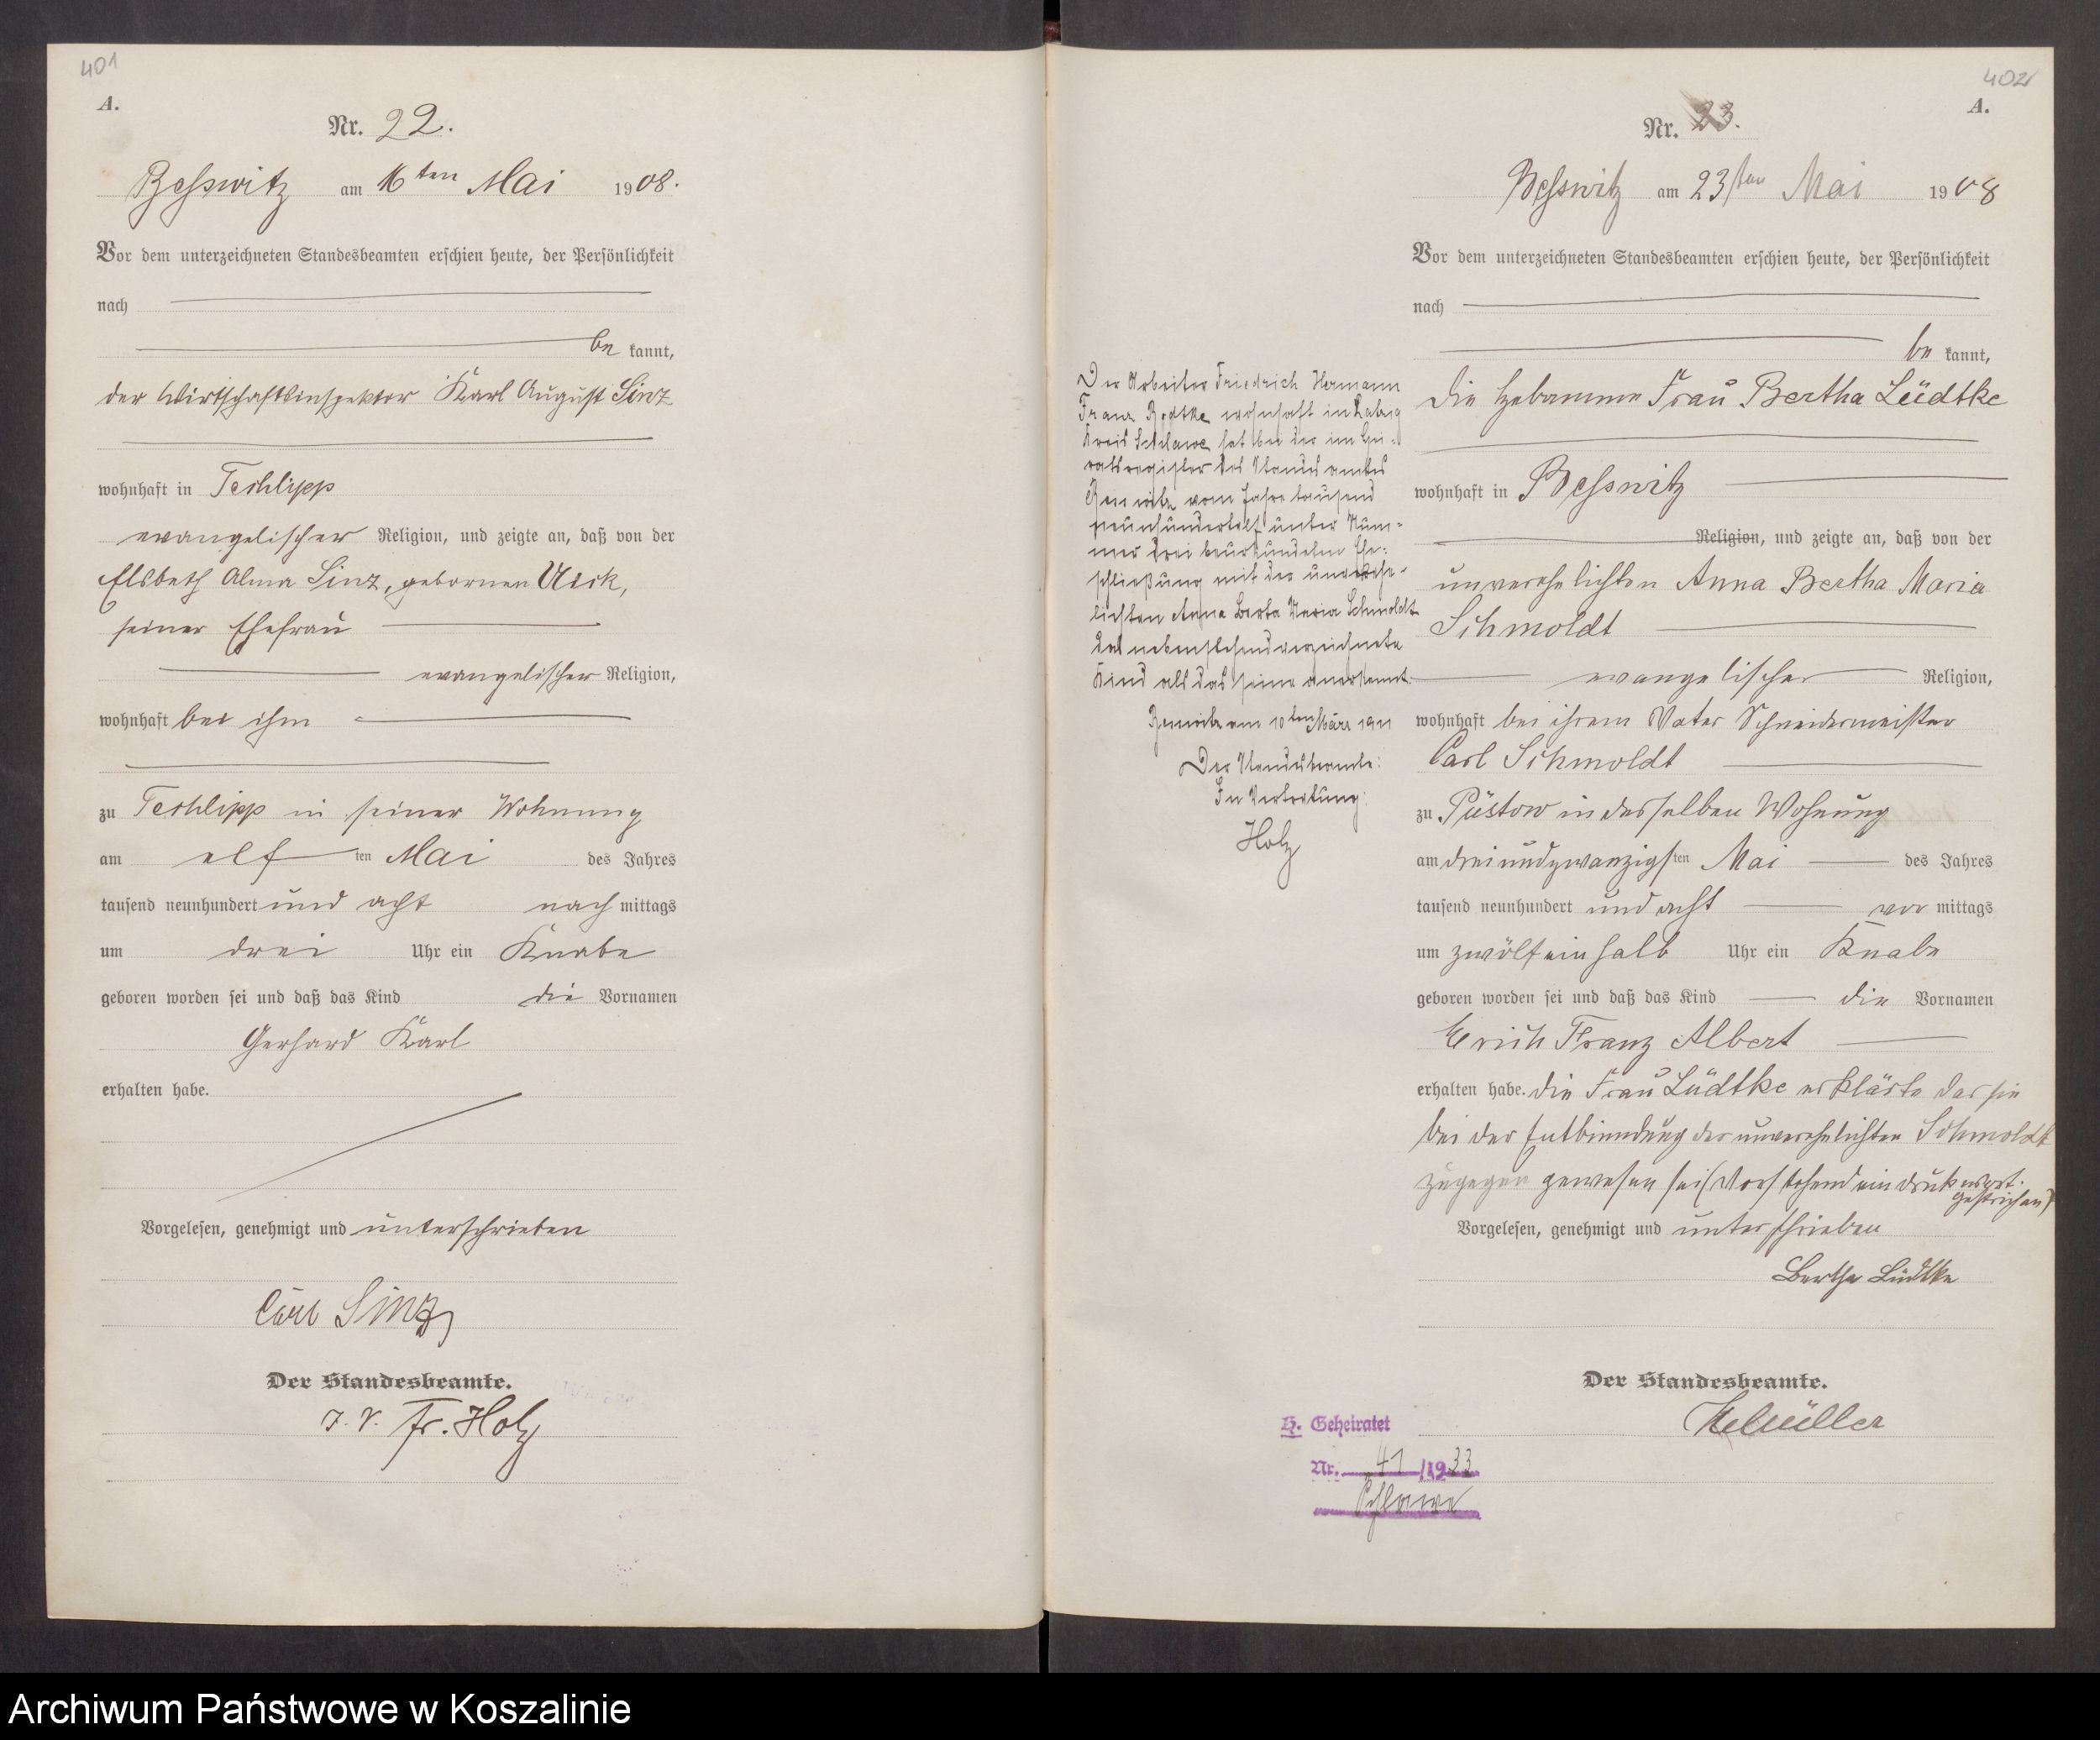 401
A.
Nr. 22.
Besswitz am 16ten Mai 1908.
Vor dem unterzeichneten Standesbeamten erschien heute, der Persönlichkeit
nach
be kannt,
der Wirtschaftsinspektor Karl August Sinz
wohnhaft in Techlipp
evangelischer Religion, und zeigte an, daß von der
Elsbeth Alma Sinz, gebornen Ueck,
seiner Ehefrau
evangelischer Religion,
wohnhaft bei ihm
zu Techlipp in seiner Wohnung
am elf ten Mai des Jahres
tausend neunhundert und acht nach mittags
um drei Uhr ein Knabe
geboren worden sei und daß das Kind die Vornamen
Gerhard Karl
erhalten habe.
Vorgelesen, genehmigt und unterschrieben
Carl Sinz
Der Standesbeamte.
I. V. Fr. Holz
402
A.
Nr. 23.
Besswitz am 23sten Mai 1908
Vor dem unterzeichneten Standesbeamten erschien heute, der Persönlichkeit
nach
be kannt,
die Hebamme Frau Bertha Lüdtke
wohnhaft in Besswitz
Religion, und zeigte an, daß von der
unverehelichten Anna Bertha Maria
Schmoldt
evangelischer Religion,
wohnhaft bei ihrem Vater Schneidermeister
Carl Schmoldt
zu Püstow in desselben Wohnung
am dreiundzwanzigsten Mai des Jahres
tausend neunhundert und acht vor mittags
um zwölfeinhalb Uhr ein Knabe
geboren worden sei und daß das Kind die Vornamen
Erich Franz Albert
erhalten habe. die Frau Lüdtke erklärte das sie
bei der Entbinndung der unverehelichten Schmoldt
zugegen gewesen sei (Vorstehend ein druckwort
gestrichen)
Vorgelesen, genehmigt und unterschrieben
Bertha Lüdtke
Der Standesbeamte.
Der Arbeiter Friedrich Hermann
Franz wohnhaft in
Kreis Schlawe hat bei der im Hei-
ratsregister des Standesamtes
vom Jahre tausend
neunhundertelf unter Num-
mer drei beurkundeten Ehe-
schließung mit der unverehe-
lichten Anna Berta Maria Schmoldt
das nebenstehend verzeichnete
Kind als das seine anerkannt.
am 10ten März 1911
Der Standesbeamte:
In Vertretung:
Holz
H. Geheiratet
Nr. 41/1933
Schlawe
Archiwum Państwowe w Koszalinie